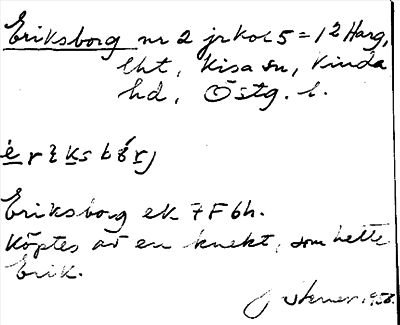 Eriksborg nr 2 jrkoc 5 = 1² Harg,
lht, Kisa sn, Kinda
hd, Östg. l.
Eriksborg ek 7F6h.
Köptes av en knekt, som hette
Erik.
1958.